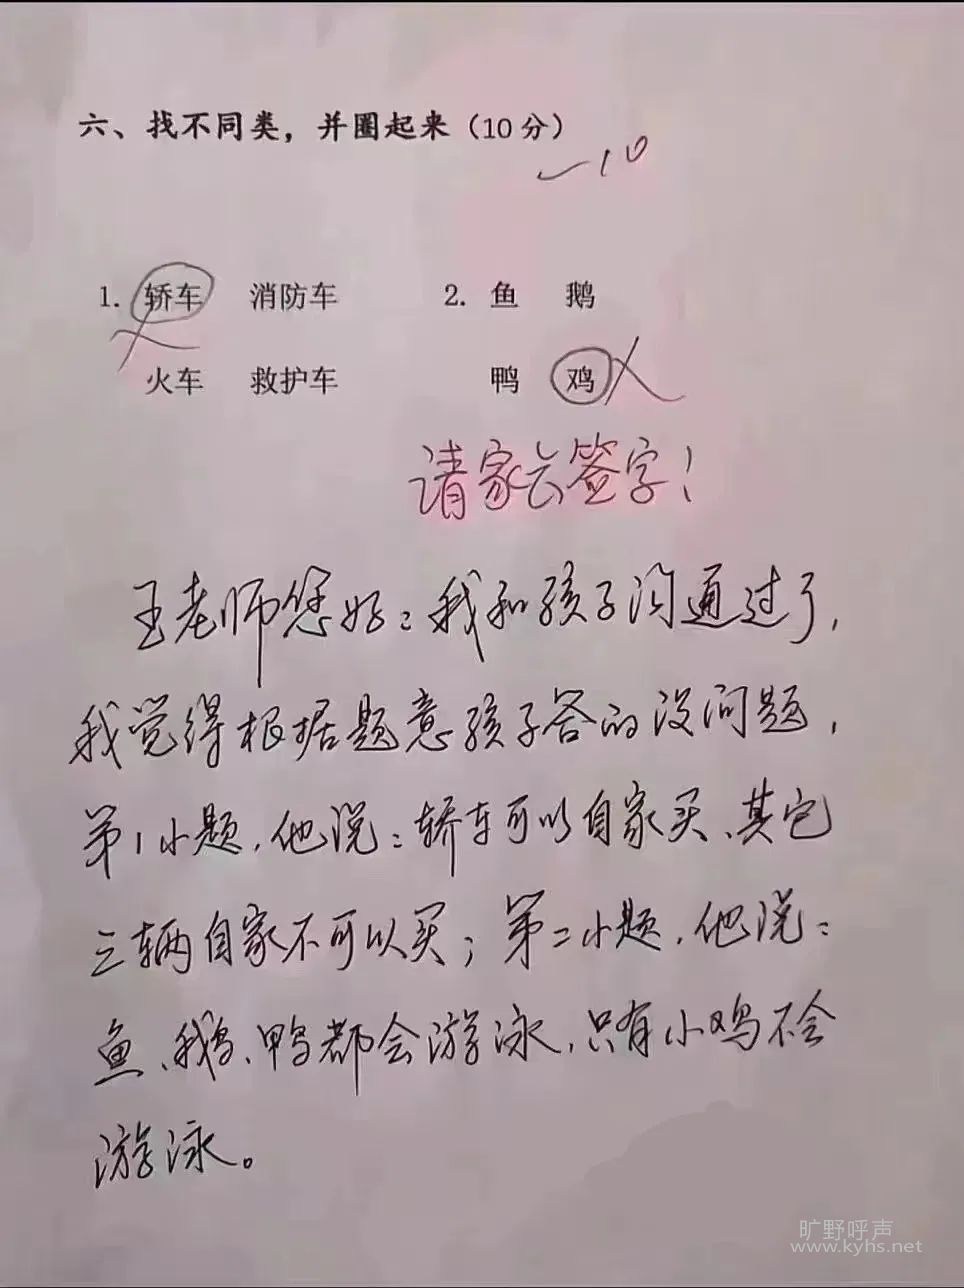 六、找不同类，并圈起来（10 分）
-10
1. 轿车 消防车 2. 鱼 鹅
火车 救护车 鸭 鸡
请家长签字！
王老师您好：我和孩子沟通过了，
我觉得根据题意孩子答的没问题，
第1小题，他说：轿车可以自家买、其它
三辆自家不可以买；第二小题，他说：
鱼、鹅、鸭都会游泳，只有小鸡不会
游泳。
旷野呼声
www.kyhs.net